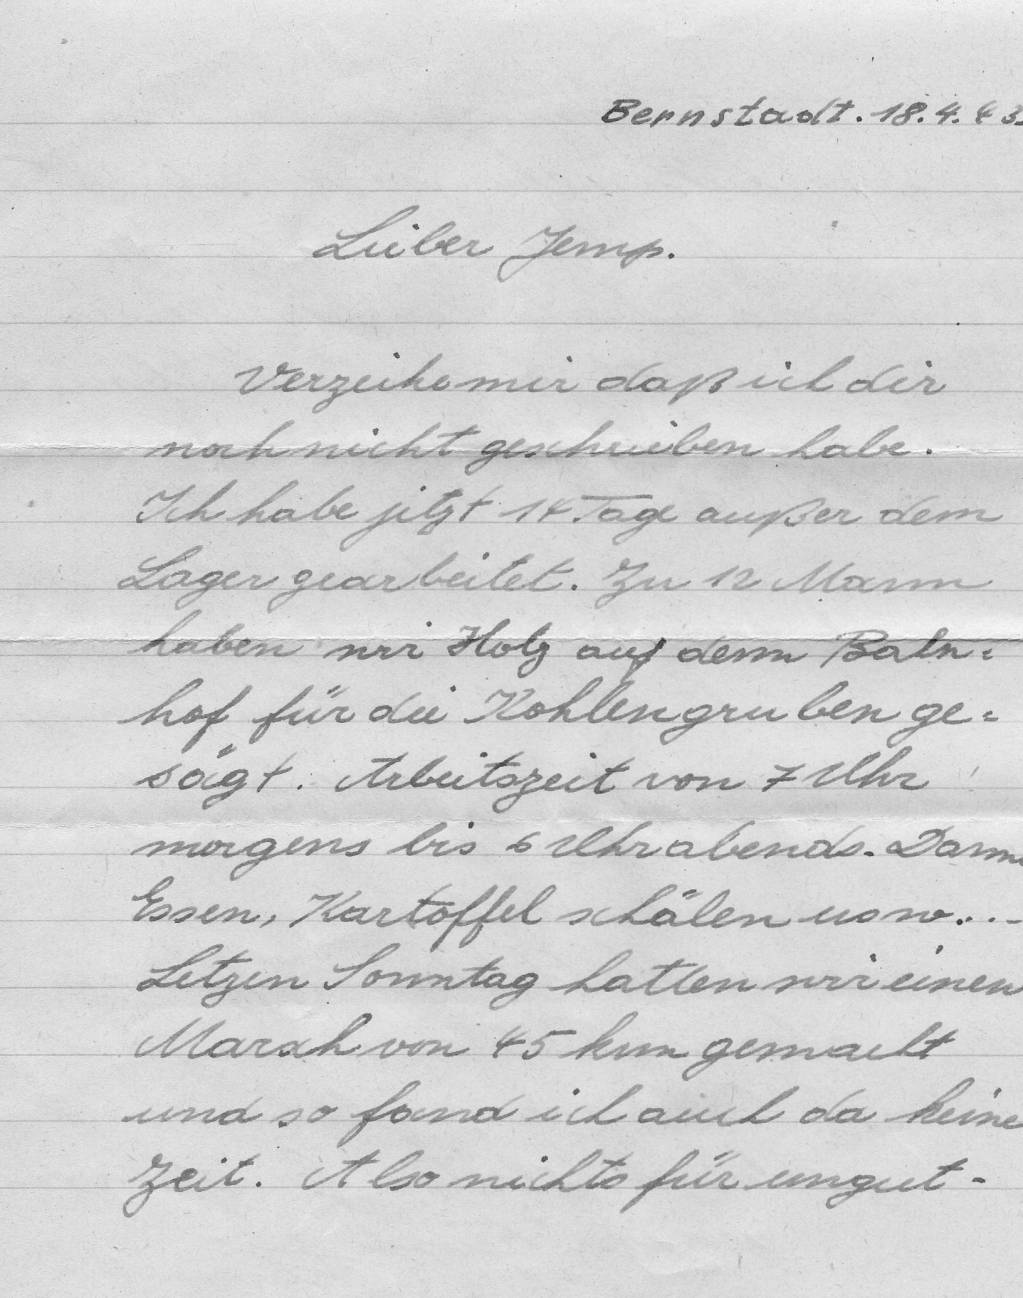 Bernstadt. 18.4.43.
Lieber Jemp.
Verzeihe mir daß ich dir
noch nicht geschrieben habe.
Ich habe jetzt 14 Tage außer dem
Lager gearbeitet. Zu 12 Mann
haben wir Holz auf dem Bahn=
hof für die Kohlengruben ge=
sägt. Arbeitszeit von 7 Uhr
morgens bis 6 Uhr abends. Dann
Essen, Kartoffel schälen usw...-
Letzen Sonntag hatten wir einen
Marsch von 45 km gemacht
und so fand ich auch da keine
Zeit. Also nichts für ungut-